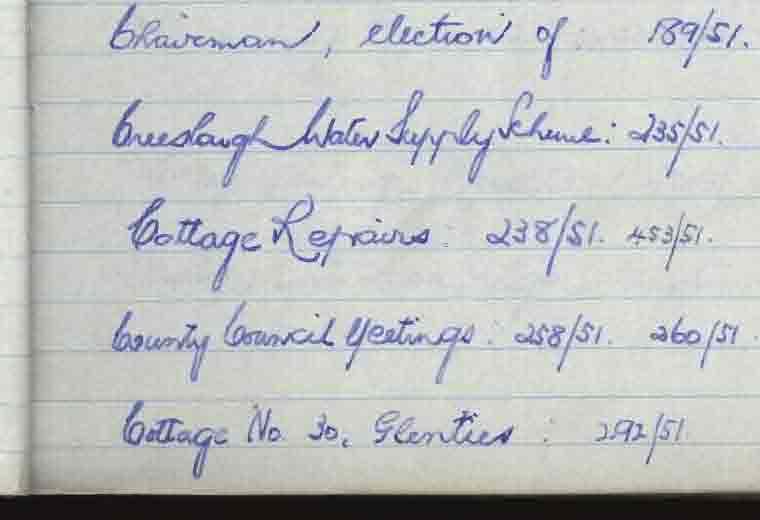 Chairman, election of : 189/51.
Creeslough Water Supply Scheme : 235/51.
Cottage Repairs : 238/51. 453/51.
County Council Meetings : 258/51. 260/51.
Cottage No. 30, Glenties : 292/51.